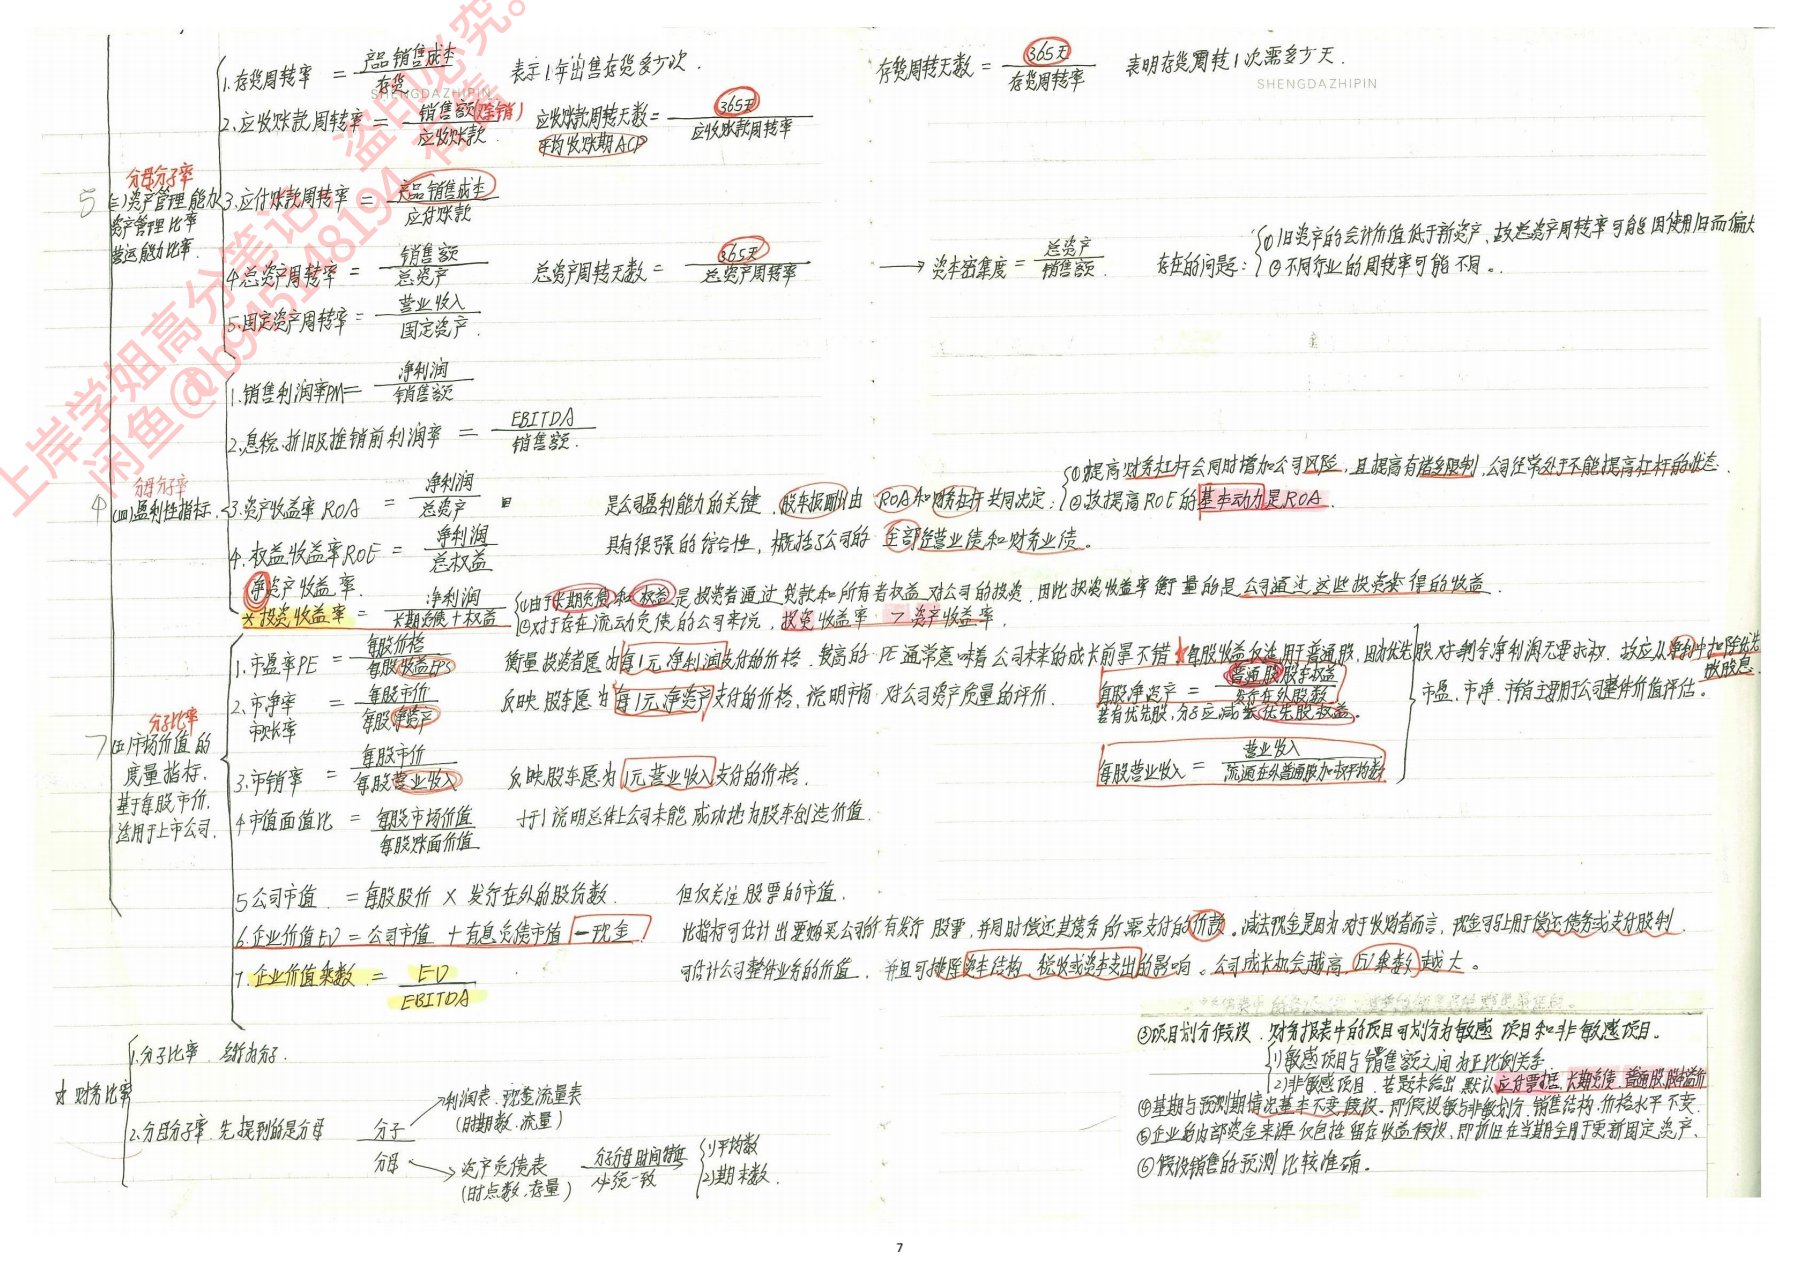 1.存货周转率 = 产品销售成本/存货 表示1年出售存货多少次. 存货周转天数 = 365天/存货周转率 表明存货周转1次需多少天.
SHENGDAZHIPIN SHENGDAZHIPIN
2.应收账款周转率 = 销售额(赊销)/应收账款 应收账款周转天数 = 365天/应收账款周转率
平均收账期ACP
分母分子率
5 (三)资产管理能力
资产管理比率
营运能力比率.
3.应付账款周转率 = 产品销售成本/应付账款
4.总资产周转率 = 销售额/总资产 总资产周转天数 = 365天/总资产周转率 → 资本密集度 = 总资产/销售额. 存在的问题:
①旧资产的会计价值低于新资产、故总资产周转率可能因使用旧而偏大
②不同行业的周转率可能不同。
5.固定资产周转率 = 营业收入/固定资产.
分母分子率
4 (四)盈利性指标.
1.销售利润率PM = 净利润/销售额
2.息税、折旧及摊销前利润率 = EBITDA/销售额.
3.资产收益率ROA = 净利润/总资产 是公司盈利能力的关键. 股东报酬由ROA和财务杠杆共同决定:
①提高财务杠杆会同时增加公司风险, 且提高有诸多限制, 公司经常处于不能提高杠杆的状态.
②故提高ROE的基本动力是ROA.
4.权益收益率ROE = 净利润/总权益 具有很强的综合性, 概括了公司的全部经营业绩和财务业绩。
净资产收益率.
*投资收益率 = 净利润/长期负债+权益
①由于长期负债和权益是投资者通过贷款和所有者权益对公司的投资, 因此投资收益率衡量的是公司通过这些投资获得的收益.
②对于存在流动负债的公司来说, 投资收益率 > 资产收益率.
分子比率
7 (五)市场价值的
度量指标.
基于每股市价,
适用于上市公司.
1.市盈率PE = 每股价格/每股收益EPS 衡量投资者愿为每1元净利润支付的价格. 较高的PE通常意味着公司未来的成长前景不错 *每股收益仅适用于普通股, 因为优先股对剩余净利润无要求权. 故应从净利中扣除优先股股息.
2.市净率 = 每股市价/每股净资产 反映股东愿为每1元净资产支付的价格、说明市场对公司资产质量的评价.
市账率
每股净资产 = 普通股股东权益/发行在外股数
若有优先股, 分子应减去优先股权益。
市盈、市净、市销主要用于公司整体价值评估。
3.市销率 = 每股市价/每股营业收入 反映股东愿为1元营业收入支付的价格.
每股营业收入 = 营业收入/流通在外普通股加权平均数
4.市值面值比 = 每股市场价值/每股账面价值 小于1说明总体上公司未能成功地为股东创造价值.
5.公司市值 = 每股股价 × 发行在外的股份数. 但仅关注股票的市值.
6.企业价值EV = 公司市值 + 有息负债市值 - 现金. 此指标可估计出要购买公司所有发行股票, 并同时偿还其债务所需支付的价款。减去现金是因为对于收购者而言, 现金可马上用于偿还债务或支付股利.
7.企业价值乘数 = EV/EBITDA 可估计公司整体业务的价值, 并且可排除资本结构、税收或资本支出的影响。公司成长机会越高, EV乘数越大。
☆财务比率
1.分子比率 给行为分子.
2.分母分子率 先提到的是分母
分子 → 利润表、现金流量表
(时期数、流量)
分母 → 资产负债表
(时点数、存量)
分子分母时间特征
必须一致
1)平均数
2)期末数.
③项目划分假设. 财务报表中的项目可划分为敏感项目和非敏感项目.
1)敏感项目与销售额之间为正比例关系
2)非敏感项目. 若题未给出, 默认应付票据、长期负债、普通股、股本溢价
④基期与预测期情况基本不变假设. 即假设敏与非敏划分、销售结构、价格水平不变.
⑤企业的内部资金来源仅包括留存收益假设、即折旧在当期全用于更新固定资产.
⑥假设销售的预测比较准确.
上岸学姐高分笔记,盗印必究。
闲鱼@b945148194 有售
7